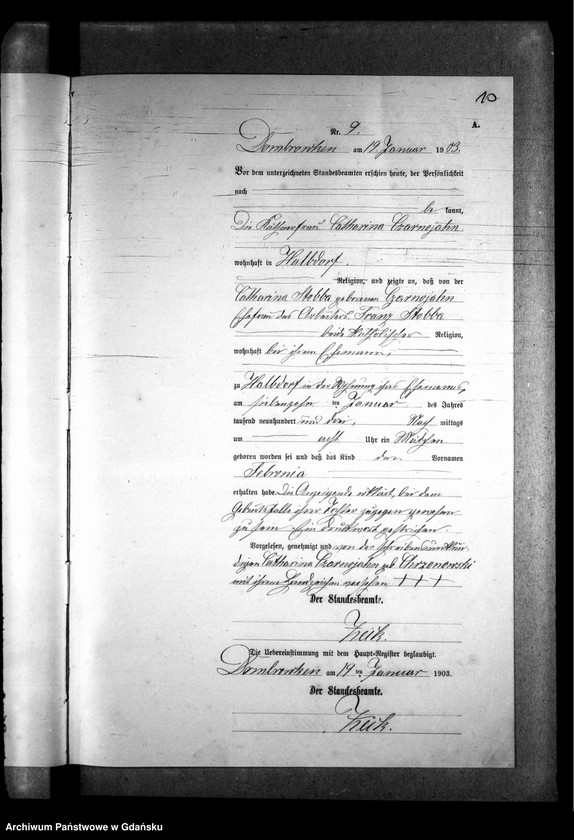 10
A.
Nr. 9.
Dombrowken am 19. Januar 1903.
Vor dem unterzeichneten Standesbeamten erschien heute, der Persönlichkeit
nach
be kannt,
die Käthnerfrau Catharina Czarnojahn
wohnhaft in Halbdorf.
Religion, und zeigte an, daß von der
Catharina Stobba geborenen Czarnojahn
Ehefrau des Arbeiters Franz Stobba
beide katholischer Religion,
wohnhaft bei ihrem Ehemann,
zu Halbdorf in der Wohnung ihres Ehemannes,
am siebenzehn ten Januar des Jahres
tausend neunhundert und drei, Nach mittags
um acht Uhr ein Mädchen
geboren worden sei und daß das Kind den Vornamen
Febronia
erhalten habe. Die Anzeigende erklärt, bei dem
Geburtsfalle ihrer Tochter zugegen gewesen
zu sein. Ein Druckwort gestrichen.
Vorgelesen, genehmigt und von der Schreibensunkun-
digen Catharina Czarnojahn geb Chrzonowski
mit ihrem Handzeichen versehen +++
Der Standesbeamte.
Zeik.
Die Uebereinstimmung mit dem Haupt-Register beglaubigt.
Dombrowken am 19 ten Januar 1903.
Der Standesbeamte.
Zeik.
Archiwum Państwowe w Gdańsku